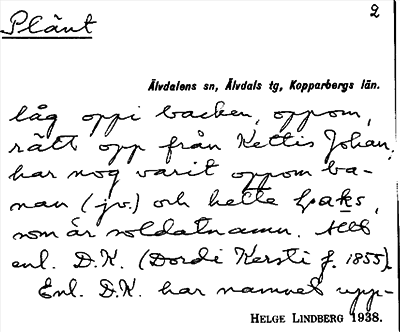 Plänt
2
Älvdalens sn, Älvdals tg, Kopparbergs län.
låg oppi backen, oppom,
rätt opp från Kettis Johan,
har nog varit oppom ba-
nan (jv.) och hette Spaks,
som är soldatnamn. Allt
enl. D.K. (Dordi Kersti f. 1855).
Enl. D.K. har namnet upp-
HELGE LINDBERG 1938.